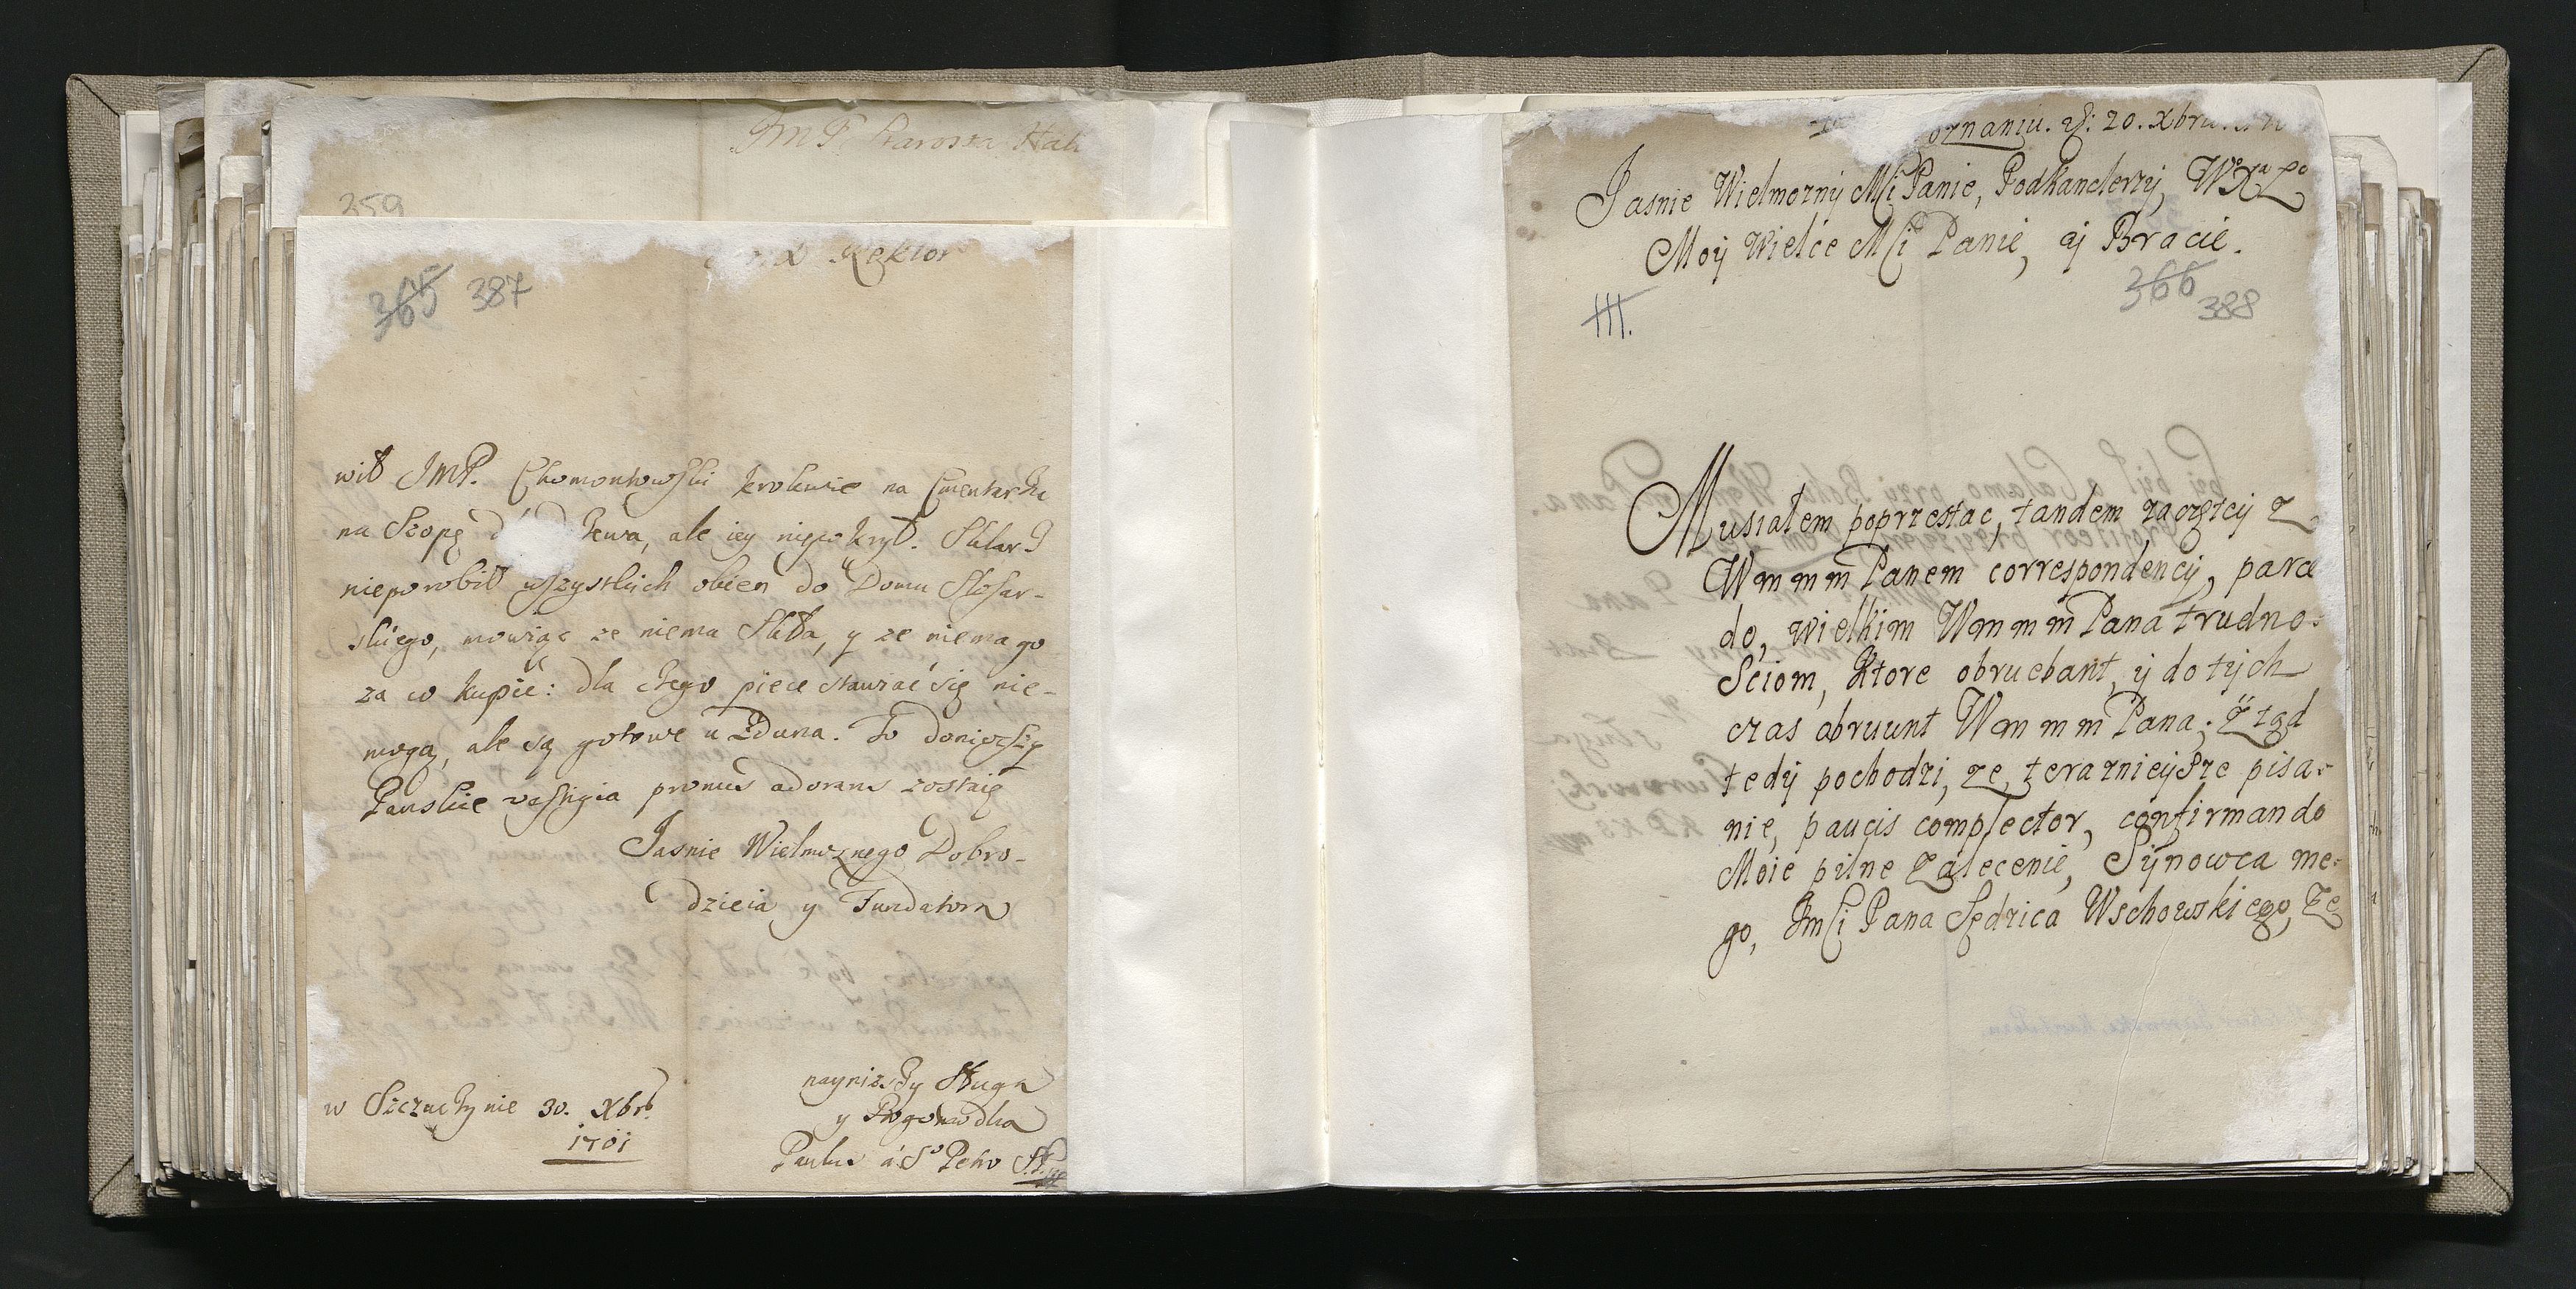 JMP Starosta Hali
359
Rektor
365 387
wił JMP. Chomontowski krokwie na Cmentarzu
na Szopę ale iey niepokrył. Sklarz
nieporobił wszystkich okien do Domu Slosar-
skiego, mowiąc ze niema Skła, y ze niema go
za co kupić: dla czego piece stawiać się nie-
mogą, ale są gotowe u Zduna. To donioszszy
Panskie vestigia pronus adorans zostaię
Jasnie Wielmoznego Dobro-
dzieia y Fundatora
w Szczuczynie 30. Xbrs
1701
nayniższy Sługa
y Bogomodlca
Paulus á So Petro S.P.
oznaniu. d: 20. Xbru
Jasnie Wielmozny Mći Panie, Podkanclerzy, WoXaLo
Moy Wielće Mći Panie, y Bracie.
III.
366
388
Musiałem poprzestac, tandem, zaczętey z
Wmmm Panem correspondency, parcę
do, wielkim Wmmm Pana trudno-
Sciom, Ktore obruebant, y do tych
czas obruunt Wmmm Pana; Ztąd
tedy pochodzi, ze, teraznieysze pisa-
nie, paucis complector, confirmando
Moie pilne Zalecenie, Synowca me-
go, Jmći Pana Sędzica Wschowskiego, Ze